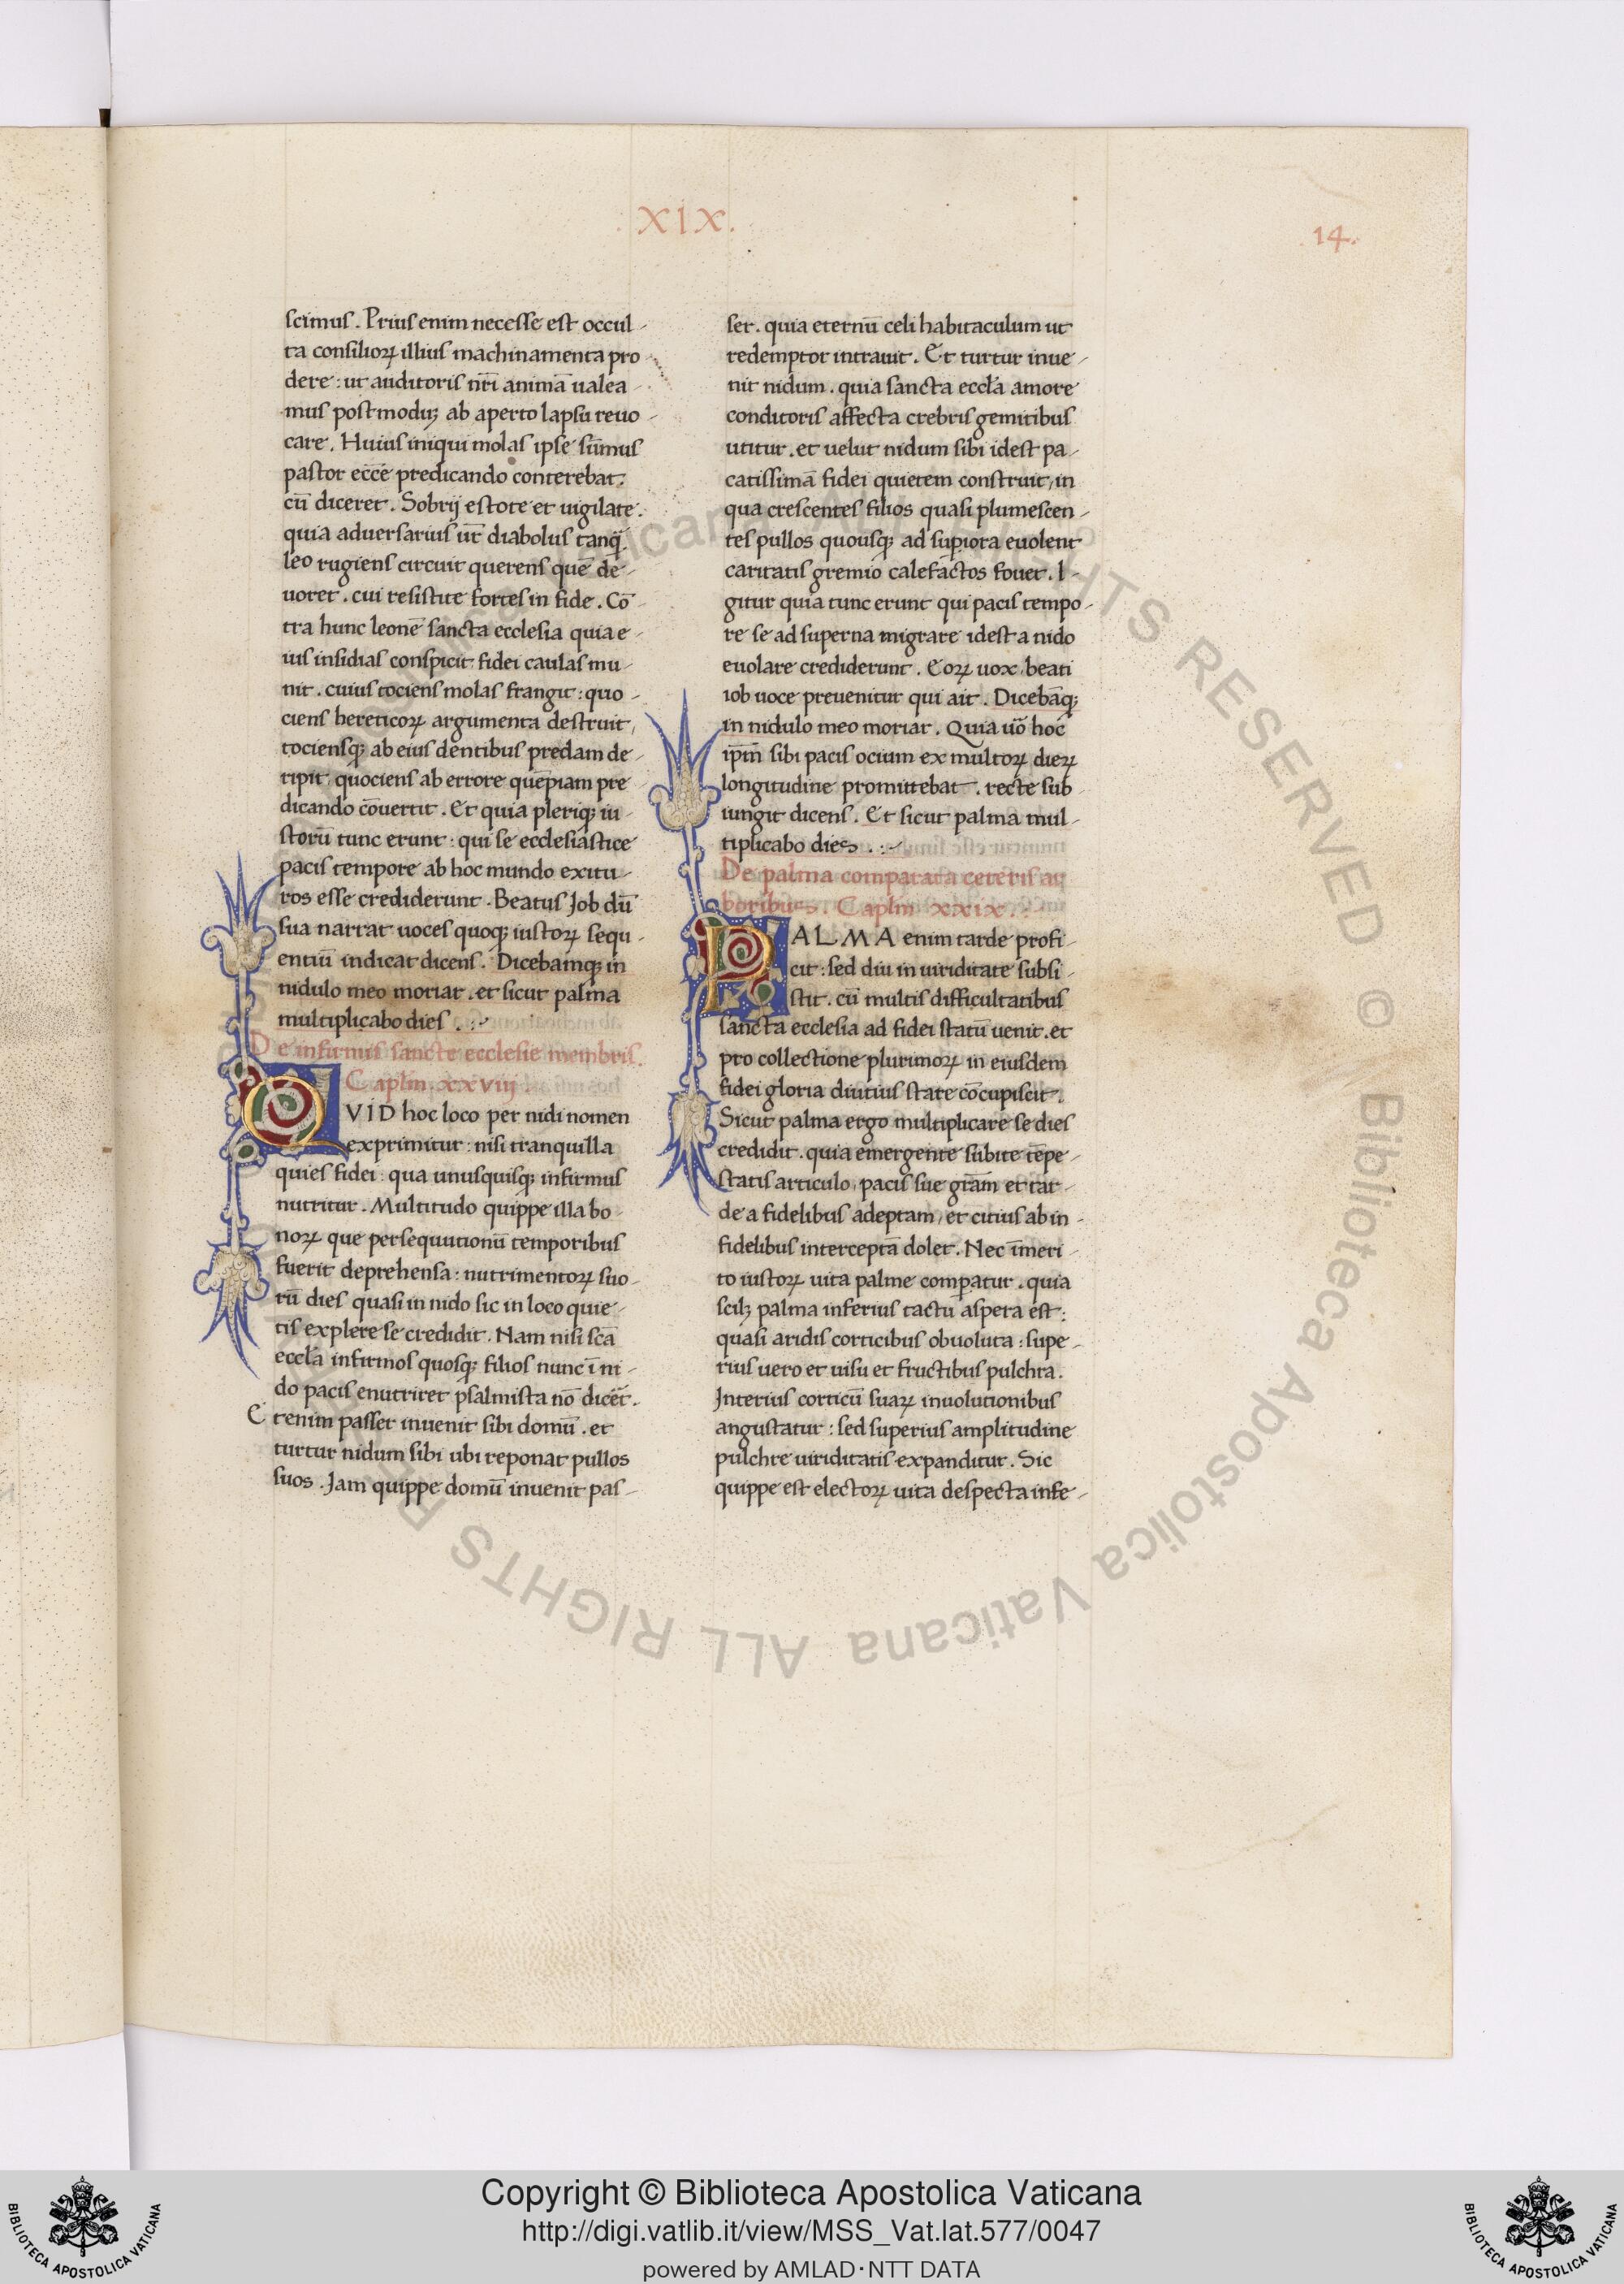 .XIX.
14.
scimus. Prius enim necesse est occul-
ta consilioꝝ illius machinamenta pro-
dere: ut auditoris nr̄i animā ualea-
mus postmoduꝫ ab aperto lapsu reuo-
care. Huius iniqui molas ipse sūmus
pastor ecce predicando conterebat:
cū diceret. Sobrij estote et uigilate.
quia aduersarius ur̄ diabolus tanq̄
leo rugiens circuit querens quē de-
uoret. cui resistite fortes in fide. Cō-
tra hunc leonē sancta ecclesia quia e-
ius insidias conspicit fidei caulas mu-
nit. cuius tociens molas frangit: quo-
ciens hereticoꝝ argumenta destruit,
tociensqꝫ ab eius dentibus predam de-
ripit, quociens ab errore quēpiam pre-
dicando cōuertit. Et quia pleriqꝫ iu-
storū tunc erunt: qui se ecclesiastice
pacis tempore ab hoc mundo exitu-
ros esse crediderunt. Beatus Job dū
sua narrat uoces quoqꝫ iustoꝝ sequ-
entiū indicat dicens. Dicebamqꝫ in
nidulo meo moriar. et sicut palma
multiplicabo dies.
De infirmis sancte ecclesie membris.
Caplm̄. xxviij.
QVID hoc loco per nidi nomen
exprimitur: nisi tranquilla
quies fidei: qua unusquisqꝫ infirmus
nutritur. Multitudo quippe illa bo-
noꝝ que persequutionū temporibus
fuerit deprehensa: nutrimentoꝝ suo-
rū dies quasi in nido sic in loco quie-
tis explere se credidit. Nam nisi scā
eccl̄a infirmos quosqꝫ filios nunc ī ni-
do pacis enutriret psalmista nō dicēt.
Etenim passer inuenit sibi domū. et
turtur nidum sibi ubi reponat pullos
suos. Jam quippe domū inuenit pas-
ser. quia eternū celi habitaculum ut
redemptor intrauit. Et turtur inue-
nit nidum. quia sancta eccl̄a amore
conditoris affecta crebris gemitibus
utitur. et uelut nidum sibi idest pa-
catissimā fidei quietem construit, in
qua crescentes filios quasi plumescen-
tes pullos quousqꝫ ad supiora euolent
caritatis gremio calefactos fouet. I-
gitur quia tunc erunt qui pacis tempo-
re se ad superna migrare idest a nido
euolare crediderunt. Eoꝝ uox beati
iob uoce preuenitur qui ait. Dicebāqꝫ
in nidulo meo moriar. Quia uō hoc
ip̄m sibi pacis ocium ex multoꝝ dieꝝ
longitudine promittebat. recte sub-
iungit dicens. Et sicut palma mul-
tiplicabo dies.
De palma comparata ceteris ar
boribus. Caplm̄ xxix.
PALMA enim tarde profi-
cit: sed diu in uiriditate subsi-
stit. cū multis difficultatibus
sancta ecclesia ad fidei statū uenit. et
pro collectione plurimoꝝ in eiusdem
fidei gloria diutius stare cōcupiscit.
Sicut palma ergo multiplicare se dies
credidit. quia emergente subite tēpe-
statis articulo, pacis sue gr̄am et tar-
de a fidelibus adeptam, et citius ab in-
fidelibus interceptā dolet. Nec īmeri-
to iustoꝝ uita palme compatur. quia
scilꝫ palma inferius tactu aspera est:
quasi aridis corticibus obuoluta: supe-
rius uero et uisu et fructibus pulchra.
Interius corticū suaꝝ inuolutionibus
angustatur: sed superius amplitudine
pulchre uiriditatis expanditur. Sic
quippe est electoꝝ uita despecta infe-
Copyright © Biblioteca Apostolica Vaticana
http://digi.vatlib.it/view/MSS_Vat.lat.577/0047
powered by AMLAD·NTT DATA